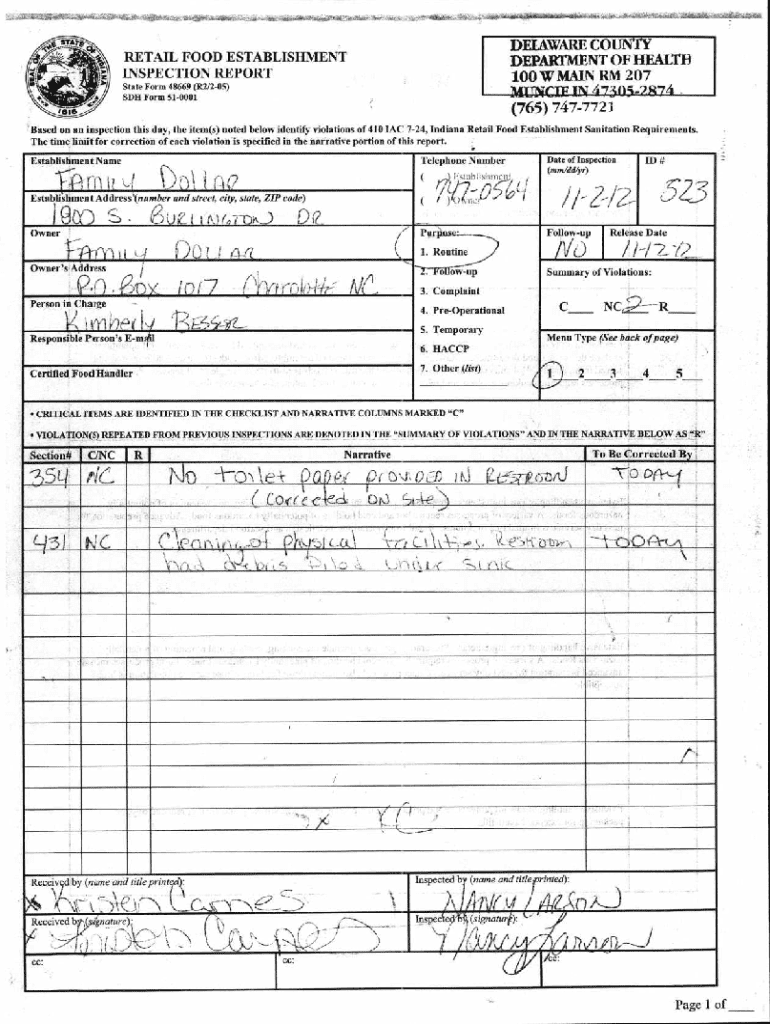 RETAIL FOOD ESTABLISHMENT
INSPECTION REPORT
State Form 48669 (R2/2-05)
SDH Form 51-0001
DELAWARE COUNTY
DEPARTMENT OF HEALTH
100 W MAIN RM 207
MUNCIE IN 47305-2874
(765) 747-7721
Based on an inspection this day, the item(s) noted below identify violations of 410 IAC 7-24, Indiana Retail Food Establishment Sanitation Requirements.
The time limit for correction of each violation is specified in the narrative portion of this report.
Establishment Name
Family Dollar
Telephone Number
( ) Establishment
747-0564
( ) Owner
Date of Inspection
(mm/dd/yr)
11-2-12
ID #
523
Establishment Address (number and street, city, state, ZIP code)
1800 S. BURLINGTON DR
Owner
Family Dollar
Owner's Address
P.O. Box 1017 Charolotte NC
Person in Charge
Kimberly BESSER
Responsible Person's E-mail
Certified Food Handler
Purpose:
1. Routine
2. Follow-up
3. Complaint
4. Pre-Operational
5. Temporary
6. HACCP
7. Other (list)
Follow-up
NO
Release Date
11-12-12
Summary of Violations:
C___ NC 2 R___
Menu Type (See back of page)
1 2 3 4 5
• CRITICAL ITEMS ARE IDENTIFIED IN THE CHECKLIST AND NARRATIVE COLUMNS MARKED "C"
• VIOLATION(S) REPEATED FROM PREVIOUS INSPECTIONS ARE DENOTED IN THE "SUMMARY OF VIOLATIONS" AND IN THE NARRATIVE BELOW AS "R"
Section# C/NC R Narrative To Be Corrected By
354 NC No toilet paper PROVIDED IN RESTROON TODAY
(Corrected ON Site)
431 NC Cleaning of physical facilities. Restroom TODAY
had debris Piled under Sink
x KC
Received by (name and title printed):
x Kristen Carnes
Inspected by (name and title printed):
NANCY LARSON
Received by (signature):
x Kristen Carnes
Inspected by (signature):
Nancy Larson
cc:
cc:
cc:
Page 1 of ___